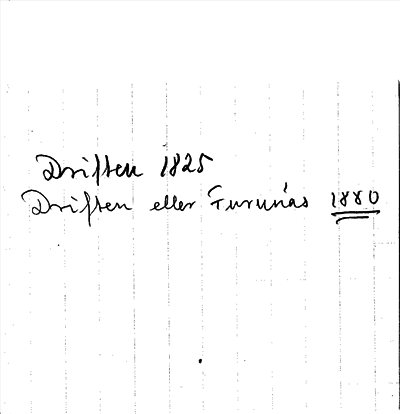 Driften 1825
Driften eller Furunäs 1880